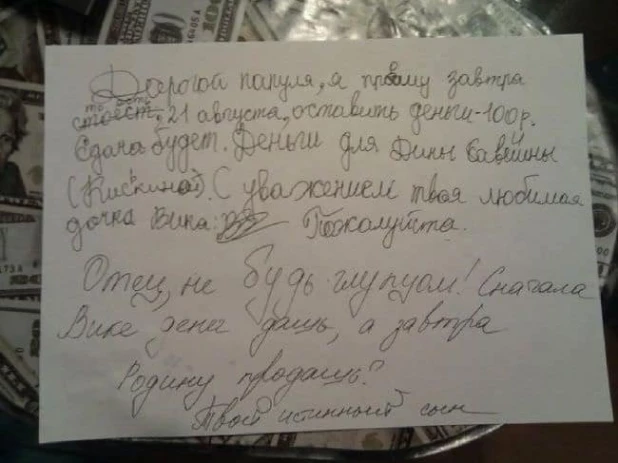 Дорогой папуля, я прошу завтра
то есть 21 августа, оставить деньги - 100 р.
Сдача будет. Деньги для Дины Савейны
(Кискиной). С уважением твоя любимая
дочка Вика. Пожалуйста.
Отец, не будь глупцом! Сначала
Вике денег дашь, а завтра
Родину продашь?
Твой истинный сын
100